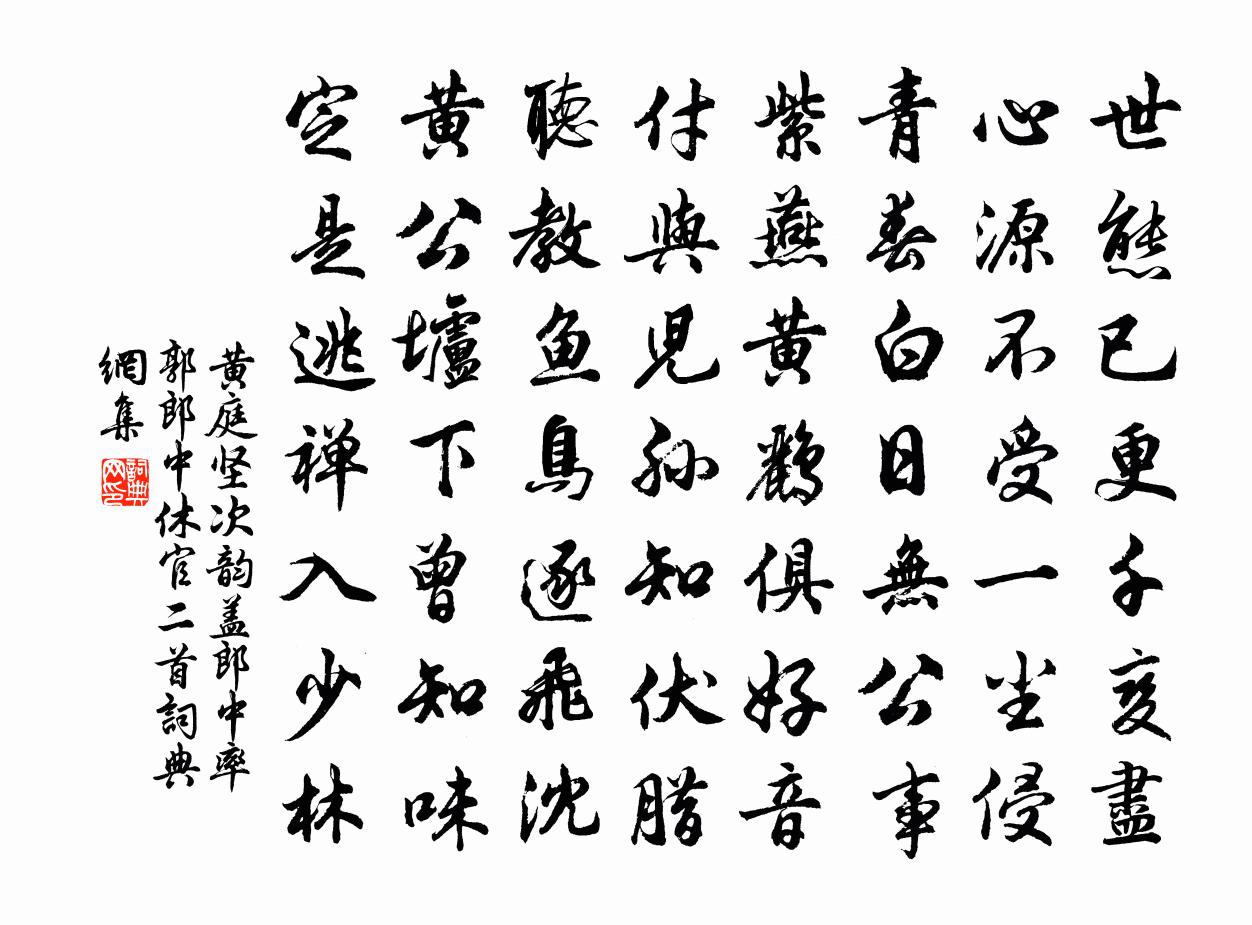 世態已更千变盡
心源不受一尘侵
青春白日無公事
紫燕黄鸝俱好音
付與児孙知伏腊
聽教鱼鳥逐飛沈
黄公壚下曾知味
定是逃禅入少林
黄庭坚次韵盖郎中率
郭郎中休官二首詞典
網集
詞典
网印